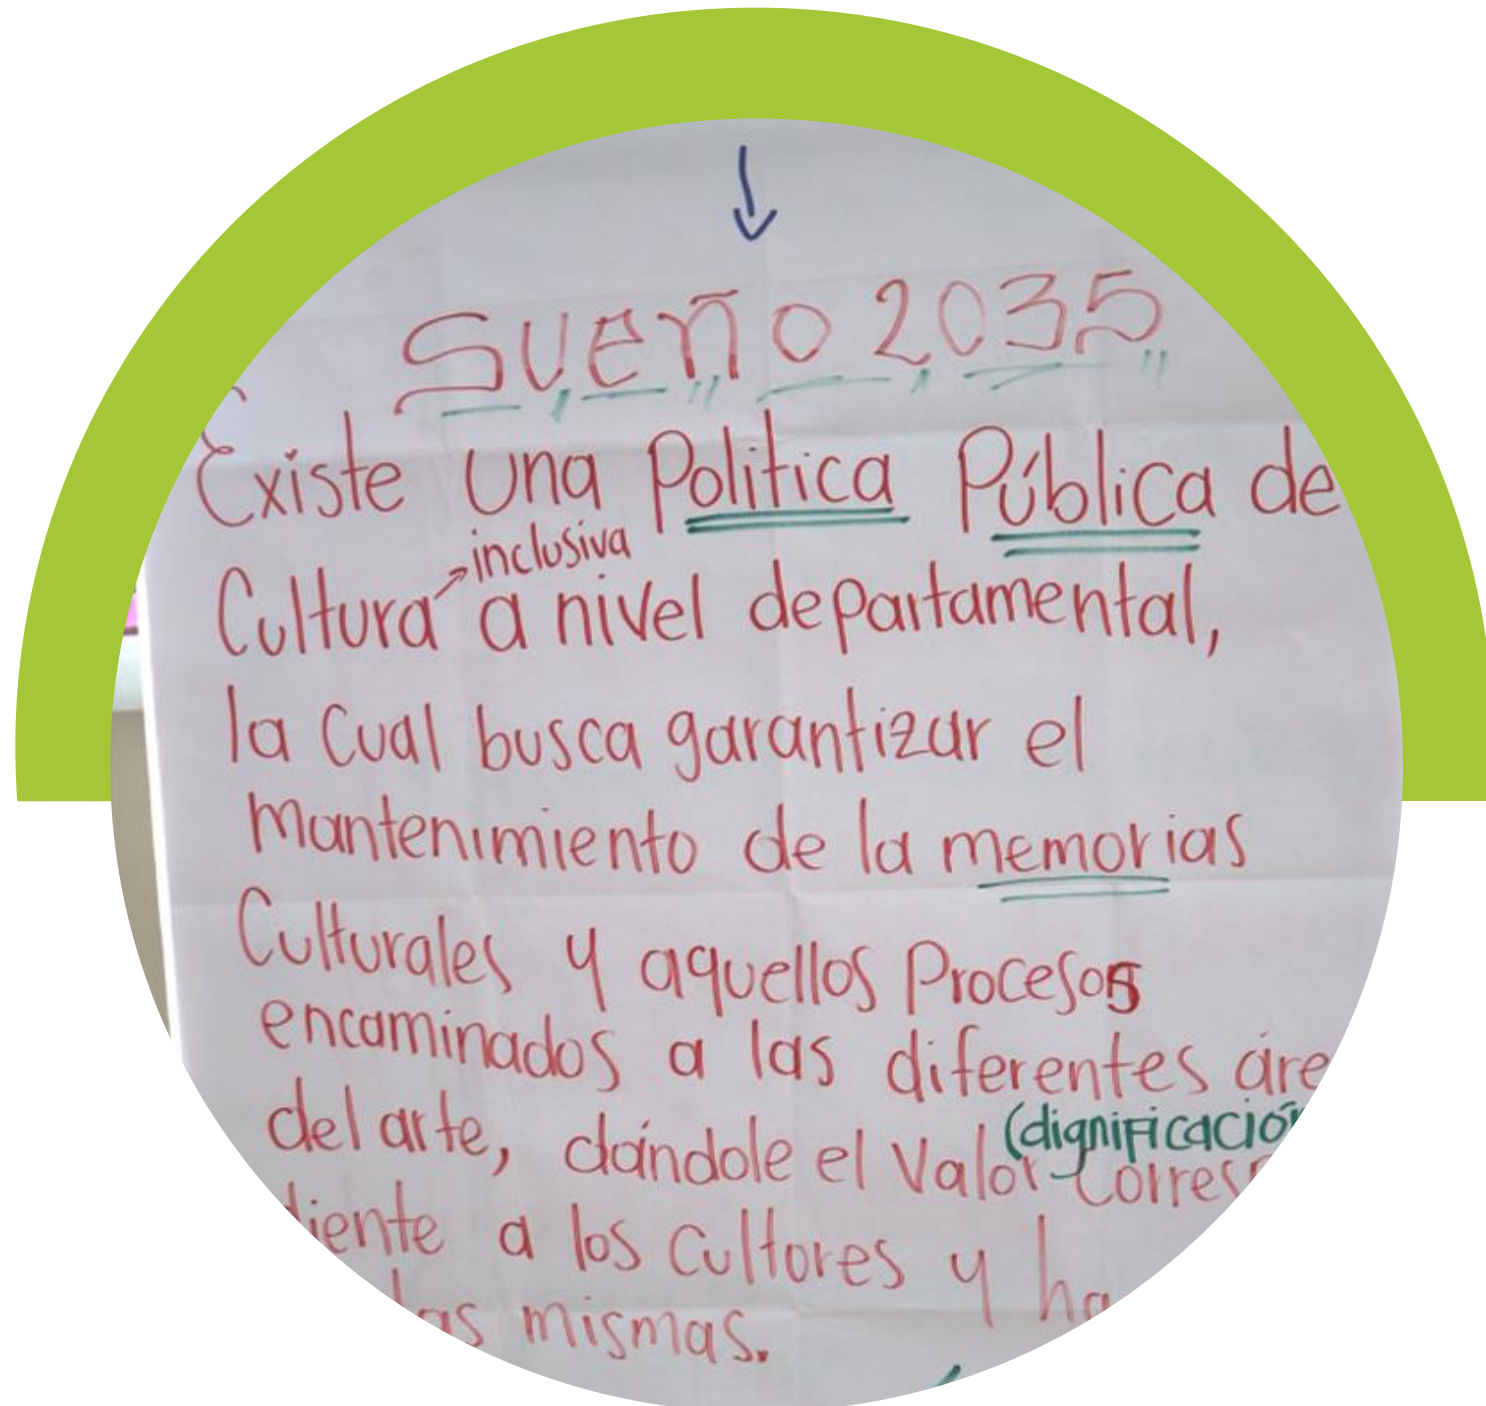 Sueño 2035
Existe una Política Pública de
inclusiva
Cultura a nivel departamental,
la cual busca garantizar el
mantenimiento de la memorias
Culturales y aquellos Procesos
encaminados a las diferentes áre
(dignificación
del arte, dándole el valor corres
diente a los cultores y ha
las mismas.